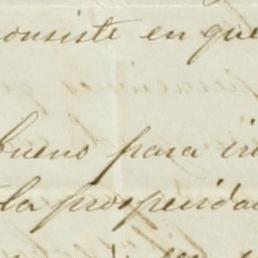 consiste en que
bueno para
la prosperida